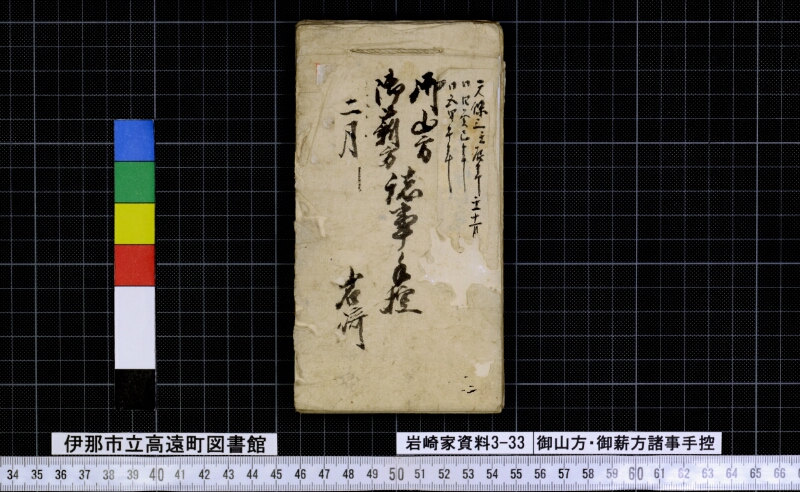 天保三壬辰年
御山方
御薪方
諸事手控
二月
岩崎
伊那市立高遠町図書館
岩崎家資料3-33
御山方・御薪方諸事手控
34 35 36 37 38 39 40 41 42 43 44 45 46 47 48 49 50 51 52 53 54 55 56 57 58 59 60 61 62 63 64 65 66